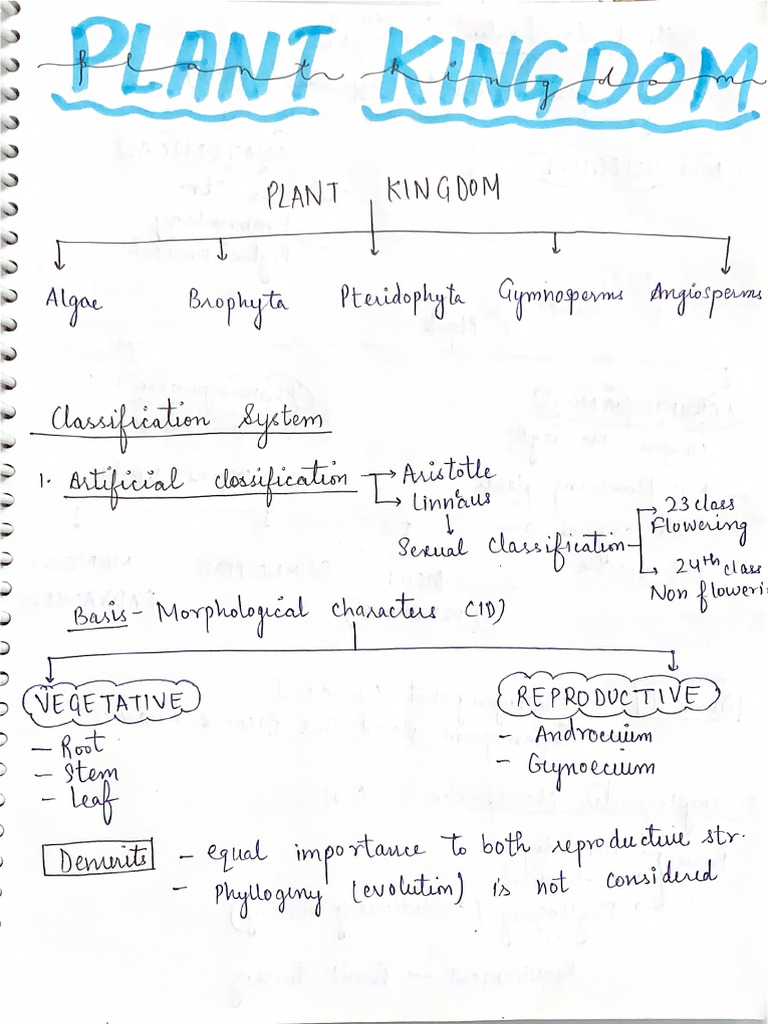 PLANT KINGDOM
plant kingdom
PLANT KINGDOM
Algae Brophyta Pteridophyta Gymnosperms Angiosperms
Classification System
1. Artificial classification → Aristotle
→ Linnaus
Sexual Classification → 23 class Flowering
→ 24th class Non floweri
Basis - Morphological characters (1D)
VEGETATIVE REPRODUCTIVE
- Root - Androecium
- Stem - Gynoecium
- Leaf
Demerits - equal importance to both reproductive str.
- Phyllogeny (evolution) is not considered